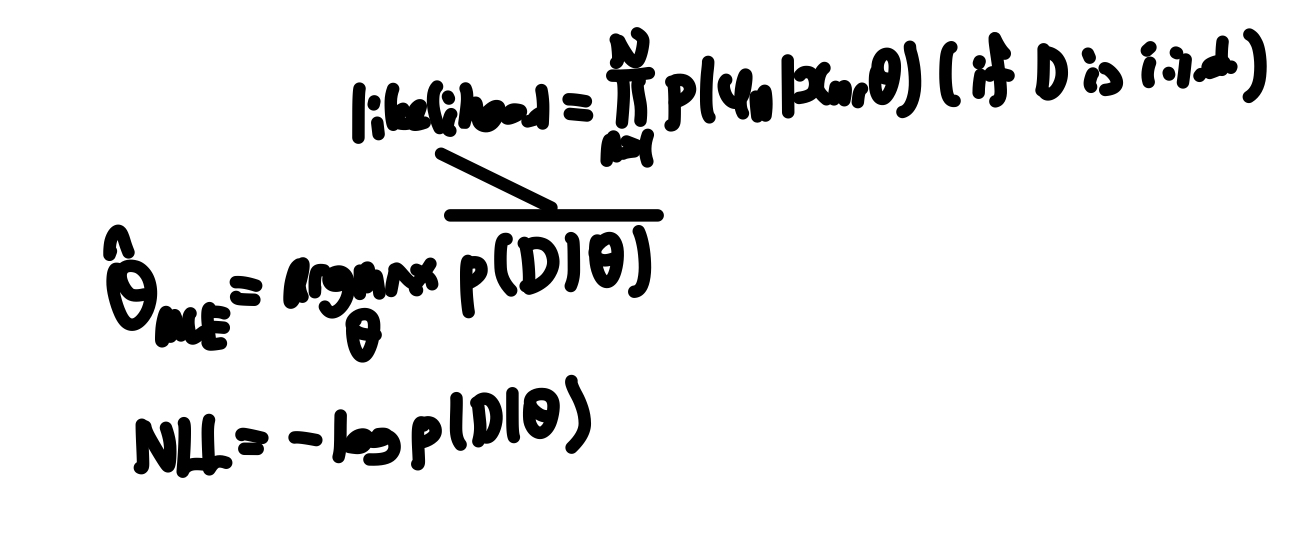 likelihood = ∏_{n=1}^{N} p(y_n|x_n, θ) (if D is i.i.d)
θ̂_MLE = argmax_θ p(D|θ)
NLL = - log p(D|θ)